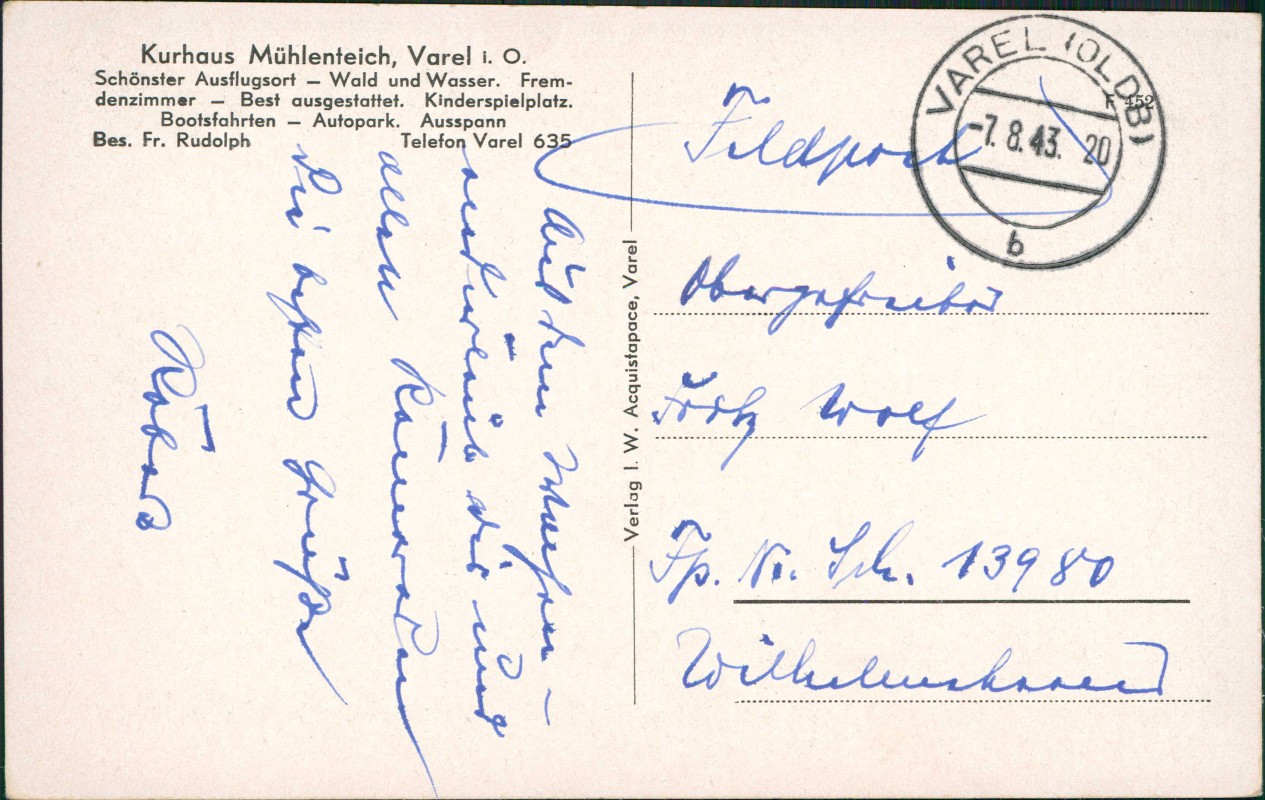 Kurhaus Mühlenteich, Varel i. O.
Schönster Ausflugsort – Wald und Wasser. Frem-
denzimmer – Best ausgestattet. Kinderspielplatz.
Bootsfahrten – Autopark. Ausspann
Bes. Fr. Rudolph Telefon Varel 635
Aus dem Wochen-
endurlaub dir und
allen Kameraden
die besten Grüße
Verlag I. W. Acquistapace, Varel
F 452
VAREL (OLDB)
-7.8.43. 20
b
Feldpost
Obergefreiter
Fritz Wolf
Fp. Nr. Sch. 13980
Wilhelmshaven